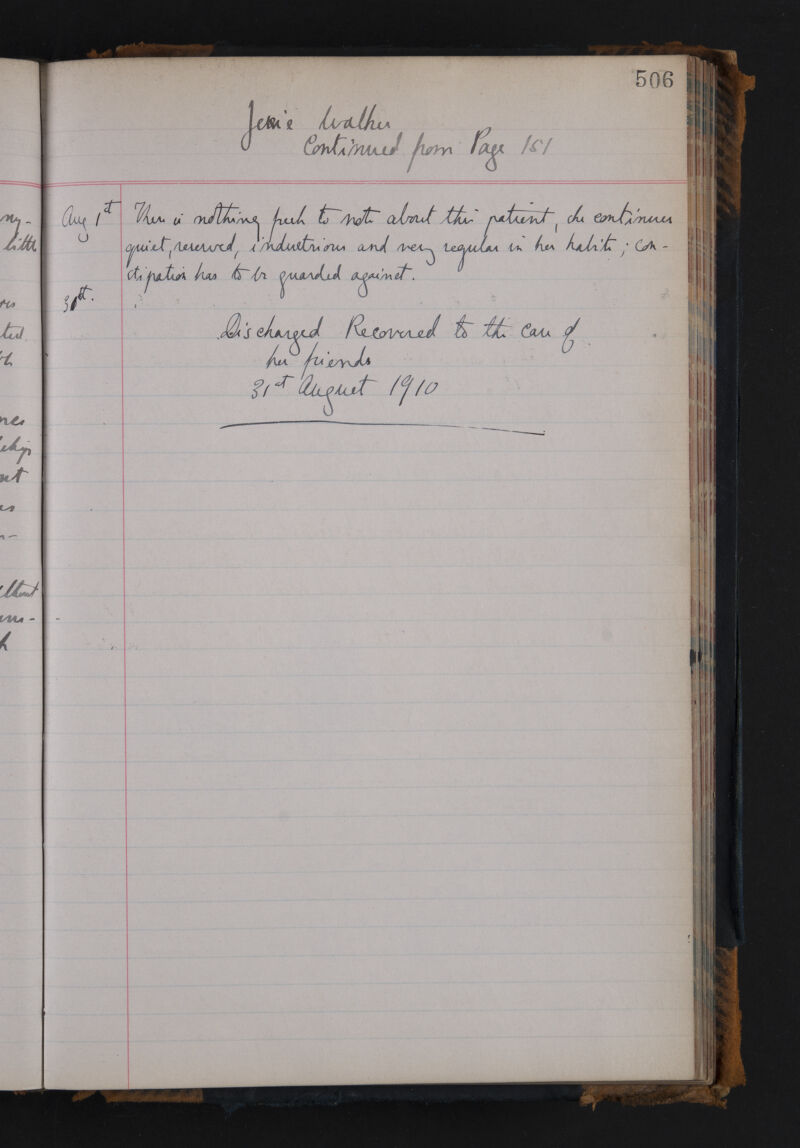 506
Jessie Walker
Continued from Page 151
Aug 1st There is nothing fresh to note about this patient, she continues
quiet, reserved, industrious and very regular in her habits; con-
stipation has to be guarded against.
31st.
Discharged Recovered to the care of
her friends
31st August 1910